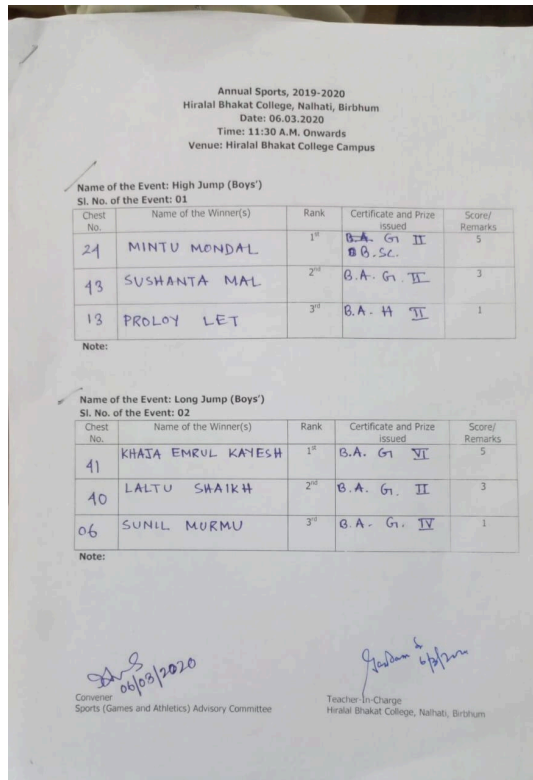 Annual Sports, 2019-2020
Hiralal Bhakat College, Nalhati, Birbhum
Date: 06.03.2020
Time: 11:30 A.M. Onwards
Venue: Hiralal Bhakat College Campus
Name of the Event: High Jump (Boys')
Sl. No. of the Event: 01
Chest No. Name of the Winner(s) Rank Certificate and Prize issued Score/ Remarks
21 MINTU MONDAL 1st B.A. G II B.SC. 5
43 SUSHANTA MAL 2nd B.A. G. II 3
13 PROLOY LET 3rd B.A. H II 1
Note:
Name of the Event: Long Jump (Boys')
Sl. No. of the Event: 02
Chest No. Name of the Winner(s) Rank Certificate and Prize issued Score/ Remarks
41 KHAJA EMRUL KAYESH 1st B.A. G VI 5
40 LALTU SHAIKH 2nd B.A. G. II 3
06 SUNIL MURMU 3rd B.A. G. IV 1
Note:
06/03/2020
Convener
Sports (Games and Athletics) Advisory Committee
Teacher-In-Charge
Hiralal Bhakat College, Nalhati, Birbhum